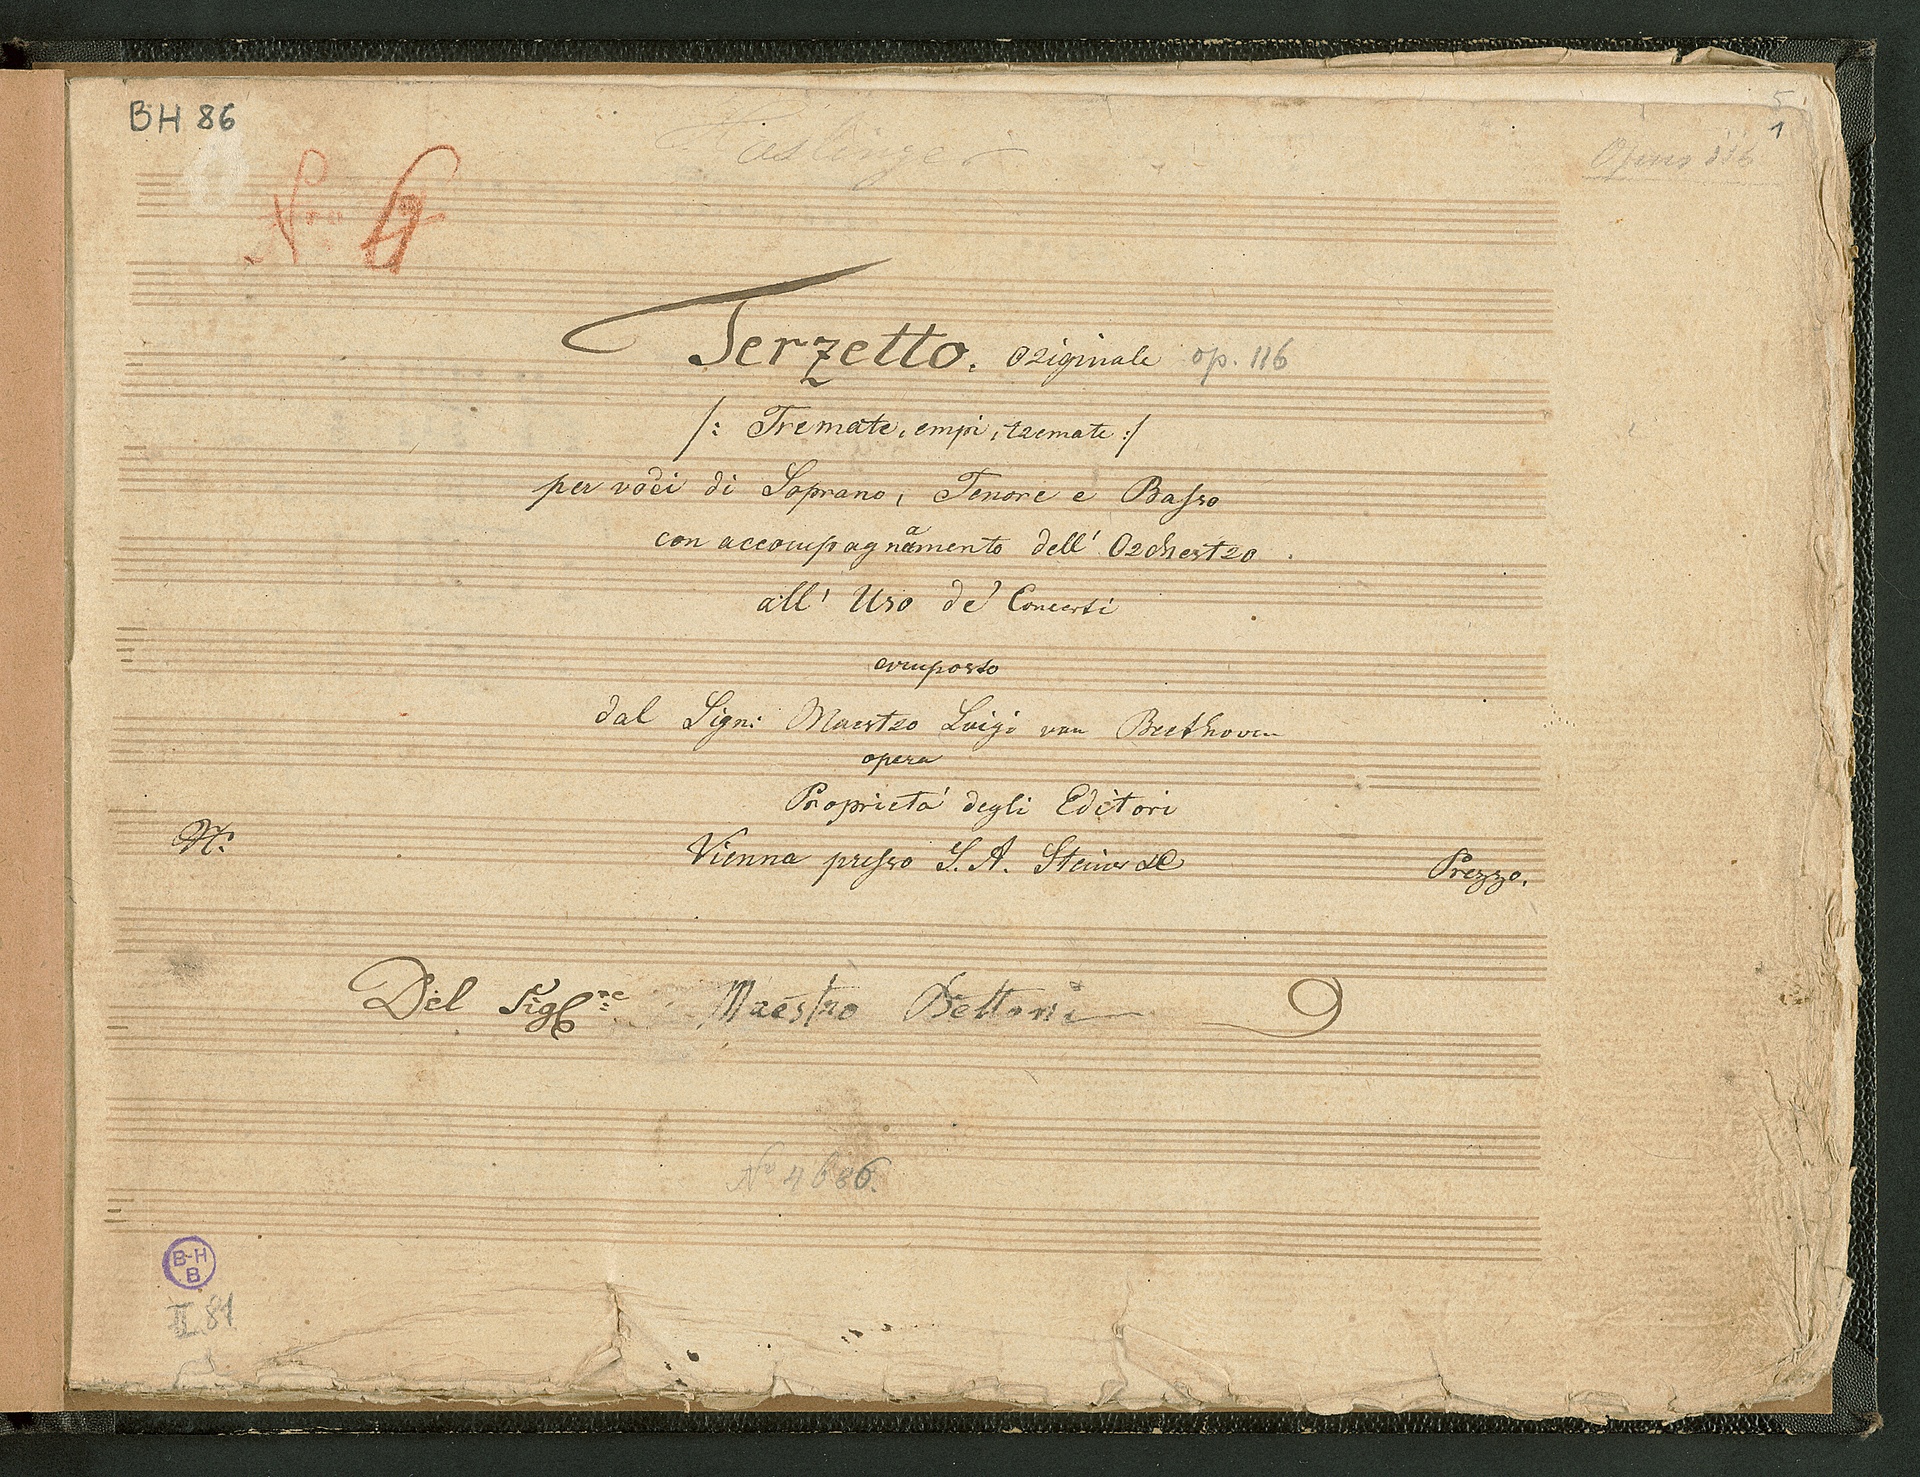 BH 86
Haslinger
5
1
Opus 116
Nro 4
Terzetto. Originale op. 116
/: Tremate, empi, tremate :/
per voci di Soprano, Tenore e Basso
con accompagnamento dell' Orchestro.
all' Uso de' Concerti
composto
dal Sign: Maestro Luigi van Beethoven
opera
Proprietá degli Editori
N: Vienna presso S. A. Steiner & C Prezzo.
Del Sig:re Maestro Bettoni
No 4636.
B-H
B
II 81